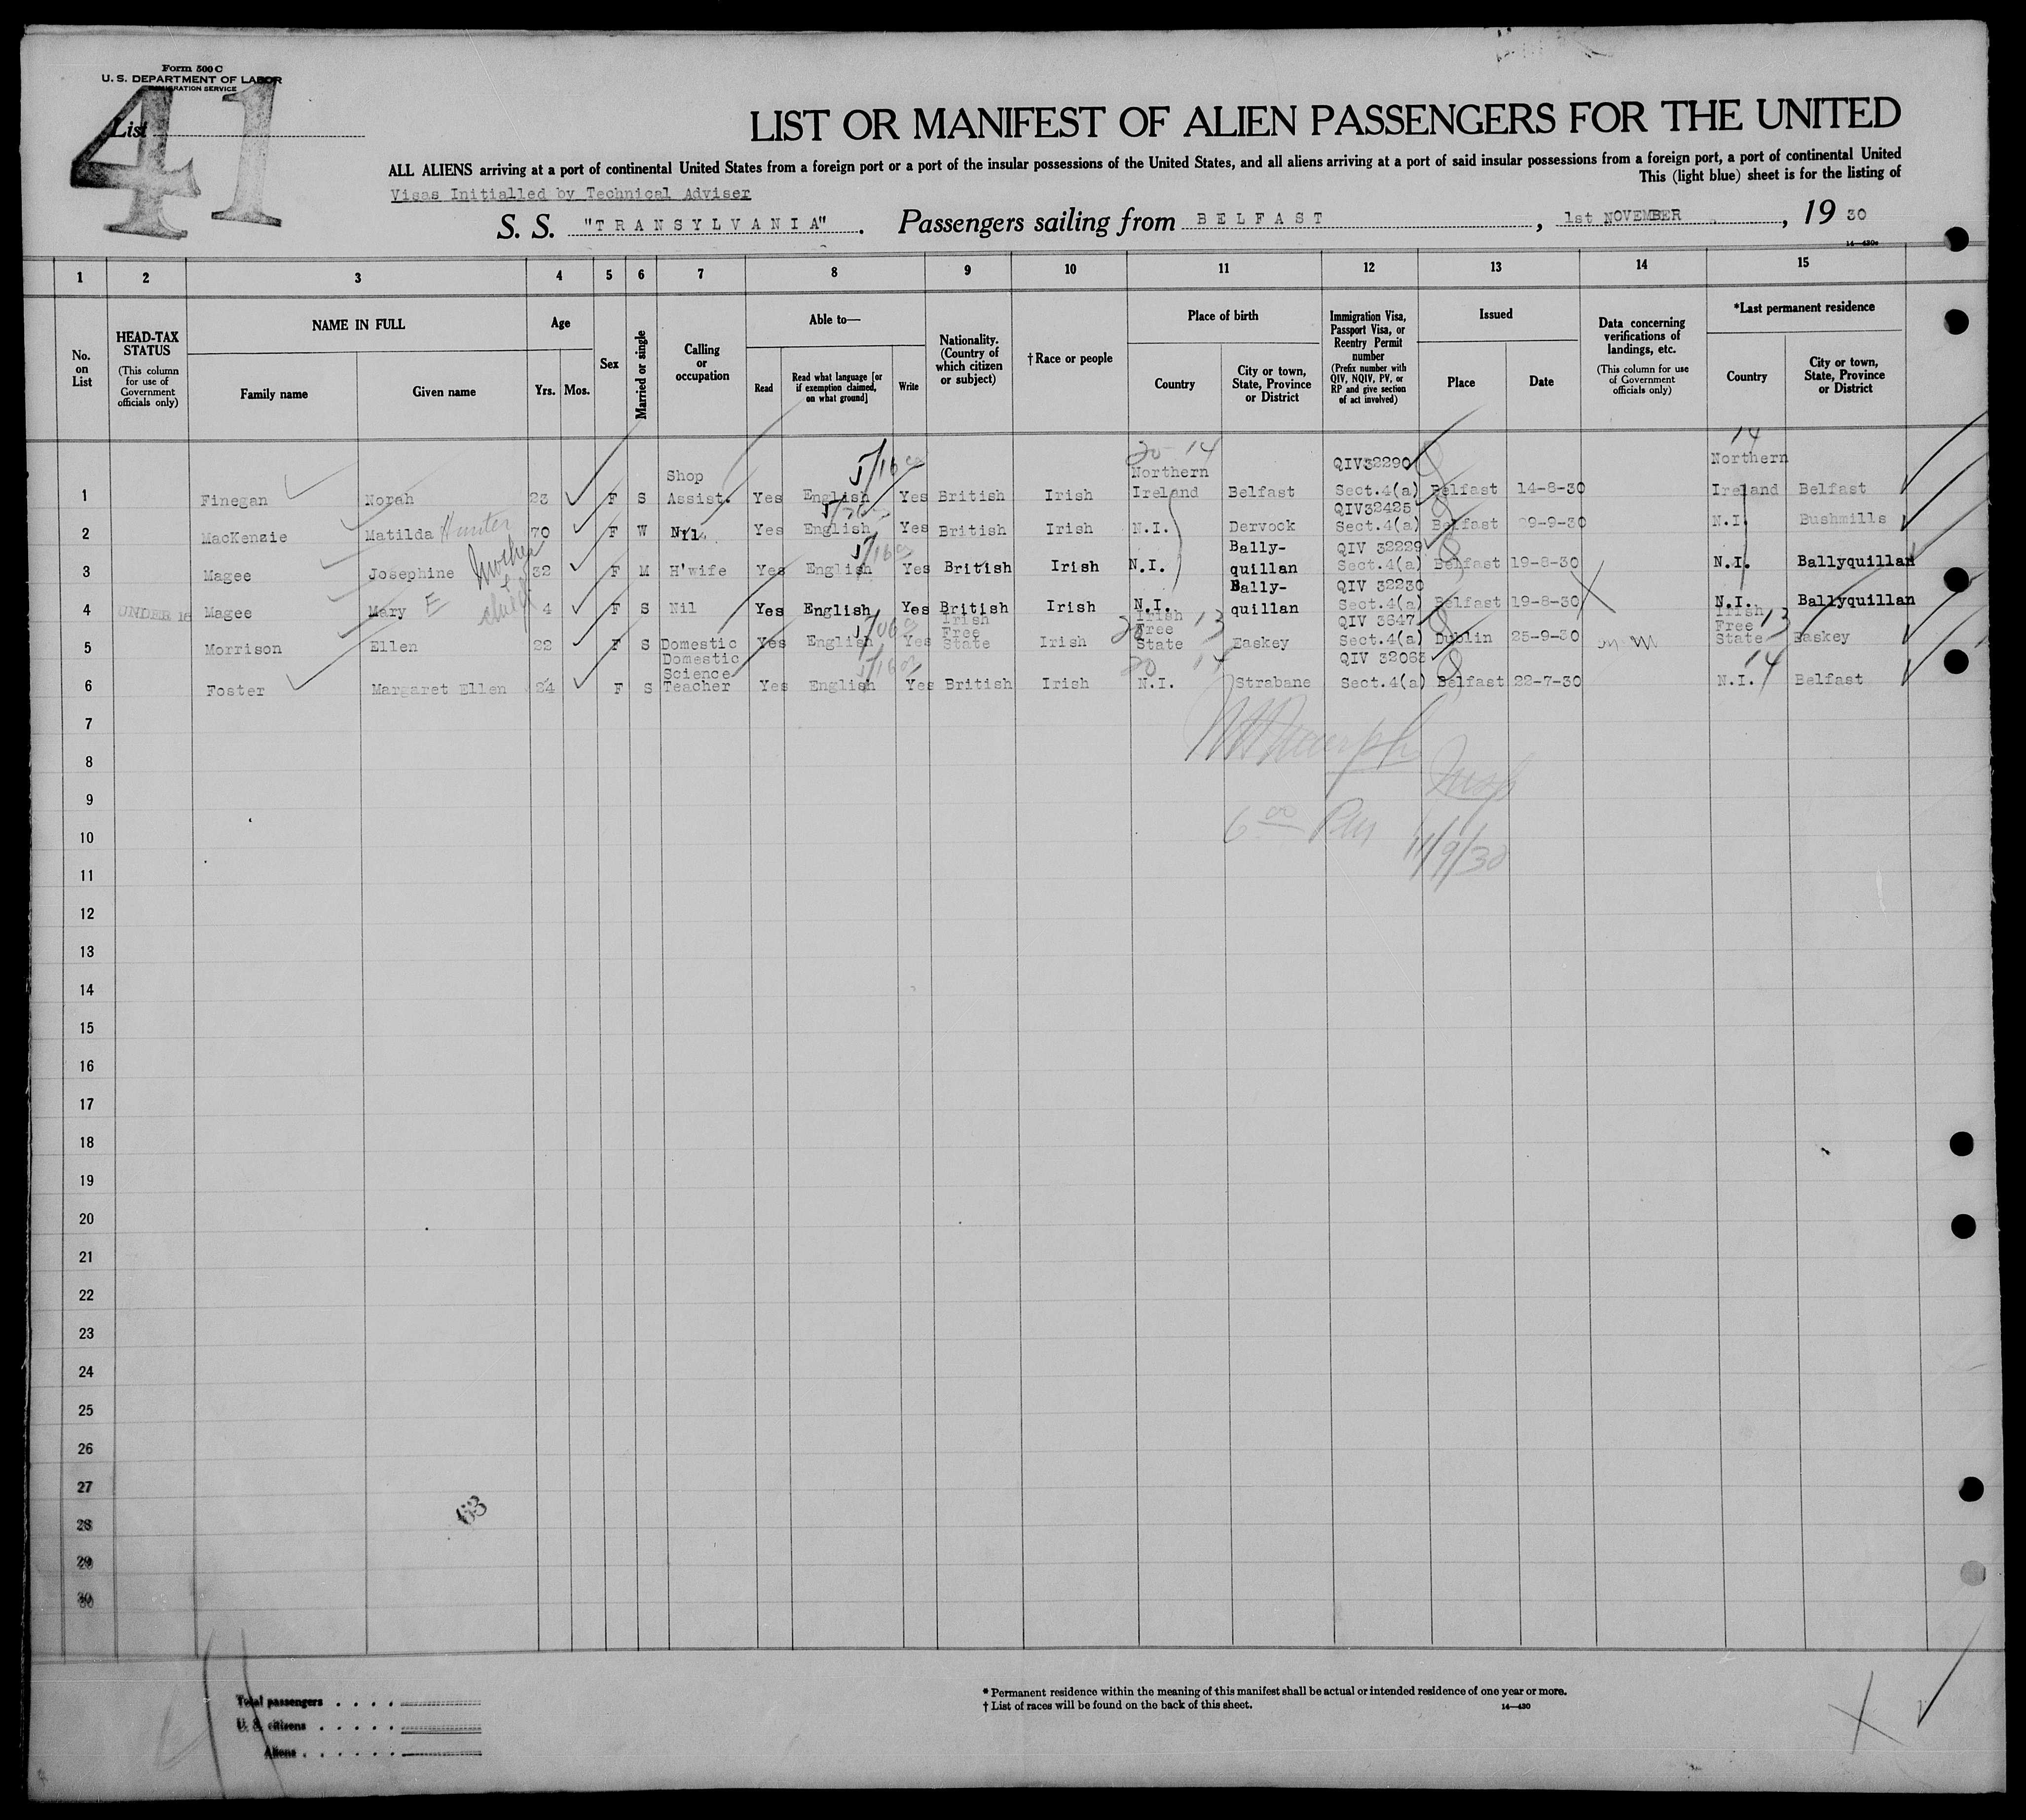 Form 500 C
U. S. DEPARTMENT OF LABOR
IMMIGRATION SERVICE
41
List
LIST OR MANIFEST OF ALIEN PASSENGERS FOR THE UNITED
ALL ALIENS arriving at a port of continental United States from a foreign port or a port of the insular possessions of the United States, and all aliens arriving at a port of said insular possessions from a foreign port, a port of continental United
This (light blue) sheet is for the listing of
Visas Initialled by Technical Adviser
S. S. "TRANSYLVANIA". Passengers sailing from BELFAST, 1st NOVEMBER, 19 30
14—430a
1 2 3 4 5 6 7 8 9 10 11 12 13 14 15
No. on List
HEAD-TAX STATUS (This column for use of Government officials only)
NAME IN FULL
Family name
Given name
Age
Yrs. Mos.
Sex
Married or single
Calling or occupation
Able to—
Read
Read what language [or if exemption claimed, on what ground]
Write
Nationality. (Country of which citizen or subject)
†Race or people
Place of birth
Country
City or town, State, Province or District
Immigration Visa, Passport Visa, or Reentry Permit number (Prefix number with QIV, NQIV, PV, or RP and give section of act involved)
Issued
Place
Date
Data concerning verifications of landings, etc. (This column for use of Government officials only)
*Last permanent residence
Country
City or town, State, Province or District
1 Finegan Norah 23 F S Shop Assist. Yes English Yes British Irish Northern Ireland Belfast QIV32290 Sect.4(a) Belfast 14-8-30 Northern Ireland Belfast
2 MacKenzie Matilda Hunter 70 F W Nil Yes English Yes British Irish N.I. Dervock QIV32425 Sect.4(a) Belfast 29-9-30 N.I. Bushmills
3 Magee Josephine Mother 32 F M H'wife Yes English Yes British Irish N.I. Bally-quillan QIV 32229 Sect.4(a) Belfast 19-8-30 N.I. Ballyquillan
4 UNDER 16 Magee Mary E child 4 F S Nil Yes English Yes British Irish N.I. Bally-quillan QIV 32230 Sect.4(a) Belfast 19-8-30 N.I. Ballyquillan
5 Morrison Ellen 22 F S Domestic Yes English Yes Irish Free State Irish Irish Free State Easkey QIV 3647 Sect.4(a) Dublin 25-9-30 Irish Free State Easkey
6 Foster Margaret Ellen 24 F S Domestic Science Teacher Yes English Yes British Irish N.I. Strabane QIV 32063 Sect.4(a) Belfast 22-7-30 N.I. Belfast
7
8
9
10
11
12
13
14
15
16
17
18
19
20
21
22
23
24
25
26
27
28
29
30
Insp
6 00 PM 11/9/30
63
Total passengers
U. S. citizens
Aliens
* Permanent residence within the meaning of this manifest shall be actual or intended residence of one year or more.
† List of races will be found on the back of this sheet.
14—430